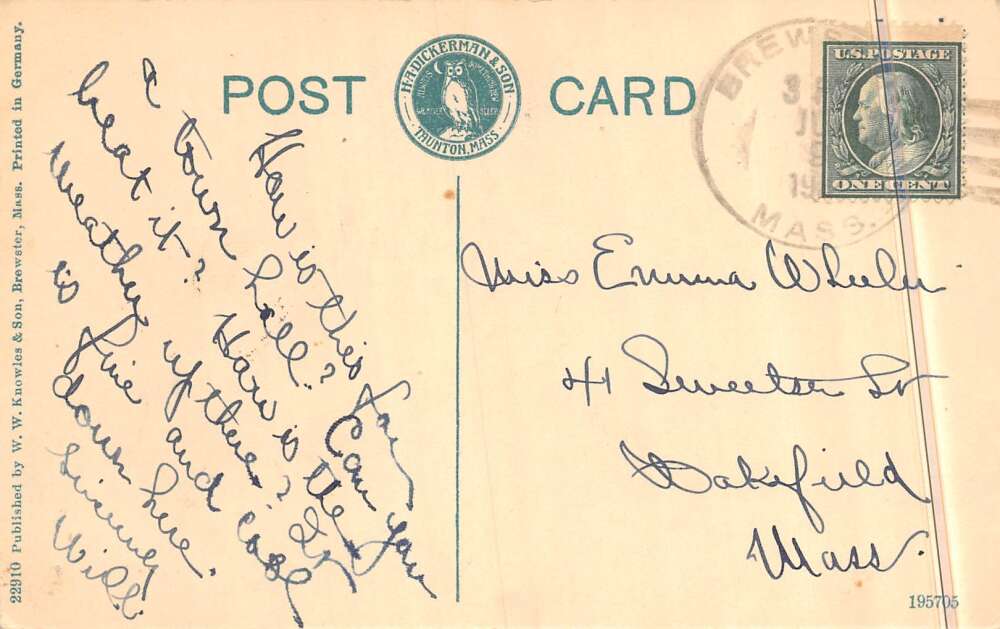 22910 Published by W. W. Knowles & Son, Brewster, Mass. Printed in Germany.
POST CARD
H.A. DICKERMAN & SON
TAUNTON, MASS.
BREWS
MASS.
U.S. POSTAGE
ONE CENT
How is this for
a town hall? Can you
beat it? How is the
weather up there? It
is fine and cool
down here.
Will
Miss Emma Wheeler
41 Sweetser St
Wakefield
Mass.
195705